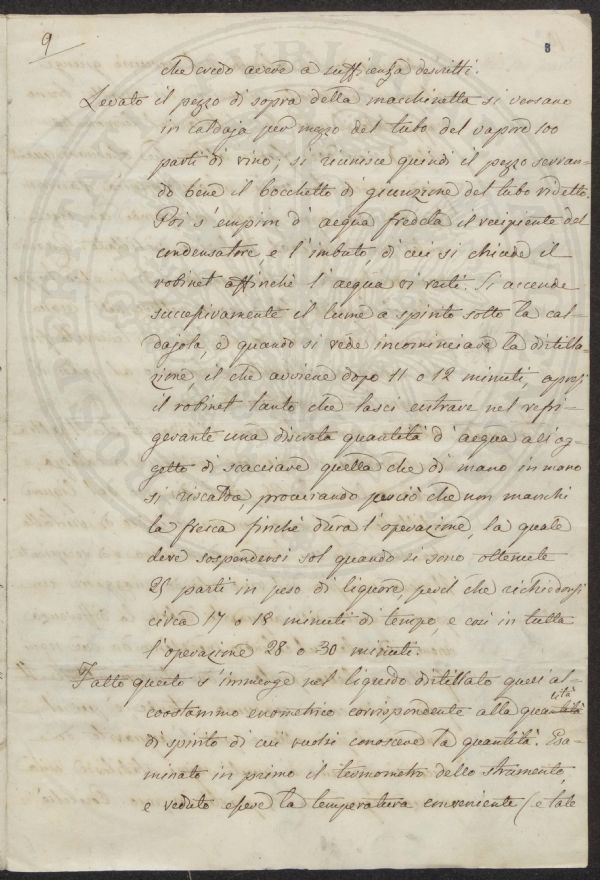 9
8
che credo avere a sufficienza descritti.
Levato il pezzo di sopra della macchinetta si versano
in caldaja per mezzo del tubo del vapore 100
parti di vino; si riunisce quindi il pezzo serran-
do bene il bocchetto di giunzione del tubo ridetto.
Poi s'empiron d'acqua fredda il recipiente del
condensatore, e l'imbuto, di cui si chiude il
robinet affinchè l'acqua vi resti. Si accende
successivamente il lume a spirito sotto la cal-
dajola, e quando si vede incominciare la distilla-
zione il che avviene dopo 11 o 12 minuti, apresi
il robinet tanto che lasci entrare nel refri-
gerante una discreta quantità d'acqua all'og-
getto di scacciare quella che di mano in mano
si riscalda, procurando perciò che non manchi
la fresca finchè dura l'operazione, la quale
deve sospendersi sol quando si sono ottenute
25 parti in peso di liquore, perlchè richiedonsi
circa 17 o 18 minuti di tempo, e così in tutta
l'operazione 28 o 30 minuti.
Fatto questo s'immerge nel liquido distillato quell'al-
coostammo enometrico corrispondente alla quantità
di spirito di cui vuolsi conoscere la quantità. Esa-
minato in primo il termometro dello strumento,
e veduto essere la temperatura conveniente (e tale